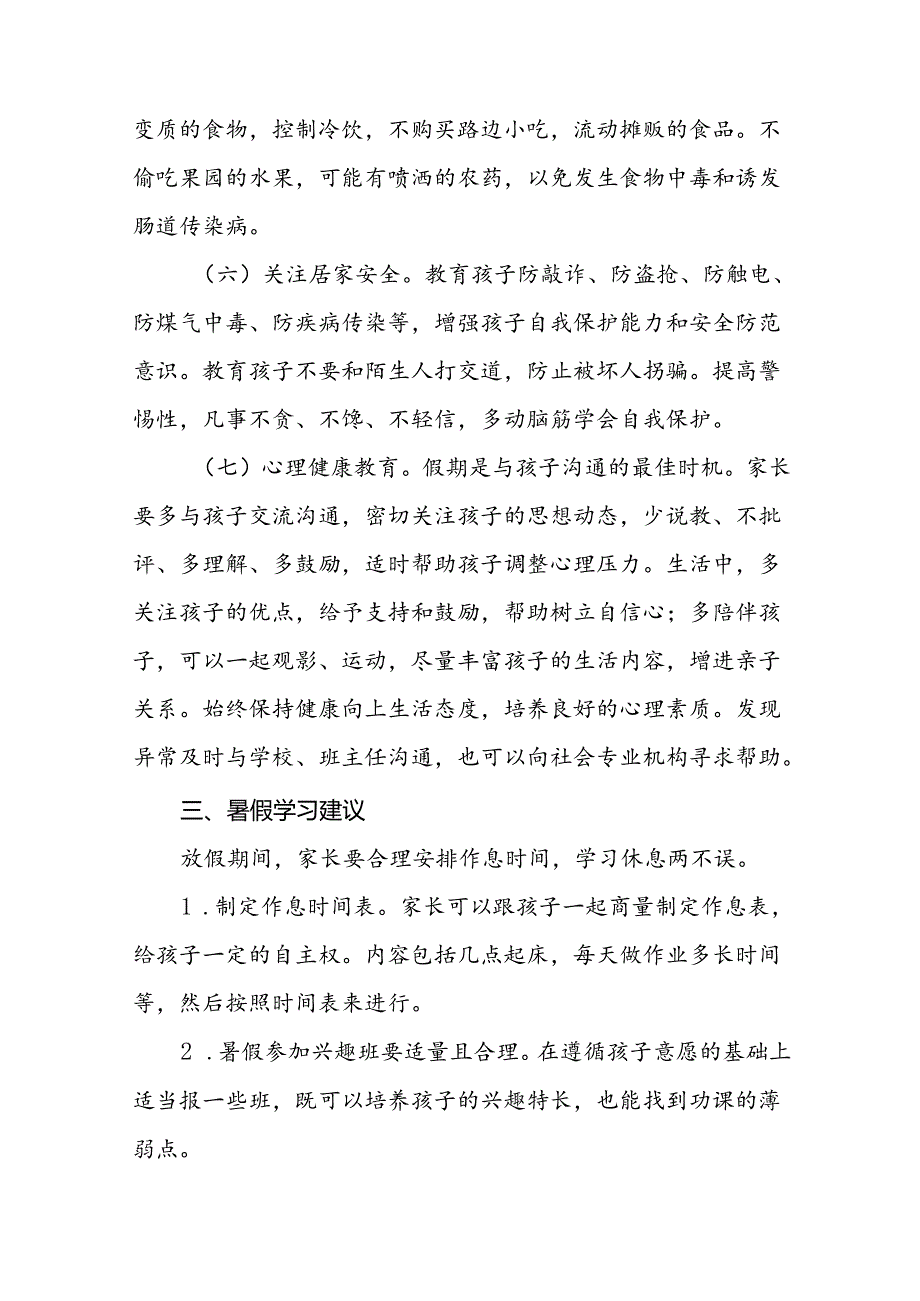 变质的食物，控制冷饮，不购买路边小吃，流动摊贩的食品。不
偷吃果园的水果，可能有喷洒的农药，以免发生食物中毒和诱发
肠道传染病。
（六）关注居家安全。教育孩子防敲诈、防盗抢、防触电、
防煤气中毒、防疾病传染等，增强孩子自我保护能力和安全防范
意识。教育孩子不要和陌生人打交道，防止被坏人拐骗。提高警
惕性，凡事不贪、不馋、不轻信，多动脑筋学会自我保护。
（七）心理健康教育。假期是与孩子沟通的最佳时机。家长
要多与孩子交流沟通，密切关注孩子的思想动态，少说教、不批
评、多理解、多鼓励，适时帮助孩子调整心理压力。生活中，多
关注孩子的优点，给予支持和鼓励，帮助树立自信心；多陪伴孩
子，可以一起观影、运动，尽量丰富孩子的生活内容，增进亲子
关系。始终保持健康向上生活态度，培养良好的心理素质。发现
异常及时与学校、班主任沟通，也可以向社会专业机构寻求帮助。
三、暑假学习建议
放假期间，家长要合理安排作息时间，学习休息两不误。
1.制定作息时间表。家长可以跟孩子一起商量制定作息表，
给孩子一定的自主权。内容包括几点起床，每天做作业多长时间
等，然后按照时间表来进行。
2.暑假参加兴趣班要适量且合理。在遵循孩子意愿的基础上
适当报一些班，既可以培养孩子的兴趣特长，也能找到功课的薄
弱点。